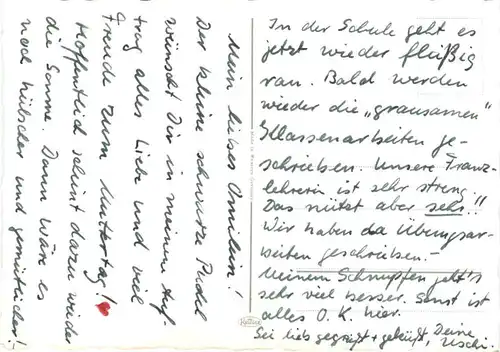 Mein liebes Omilein!
Der kleine schwarze Pudel
wünscht Dir in meinem Auf-
trag alles Liebe und viel
Freude zum Muttertag!
Hoffentlich scheint dazu wieder
die Sonne. Dann wäre es
noch hübscher und gemütlicher!
In der Schule geht es
jetzt wieder flüßig
ran. Bald werden
wieder die „grausamen"
Klassenarbeiten ge-
schrieben. Unsere Franz-
lehrerin ist sehr streng!
Das nützt aber sehr!!
Wir haben da Übungsar-
beiten geschrieben.-
Meinem Schnupfen geht's
sehr viel besser. Sonst ist
alles O.K. hier.
Sei lieb gegrüßt + geküßt, Deine
Uschi.